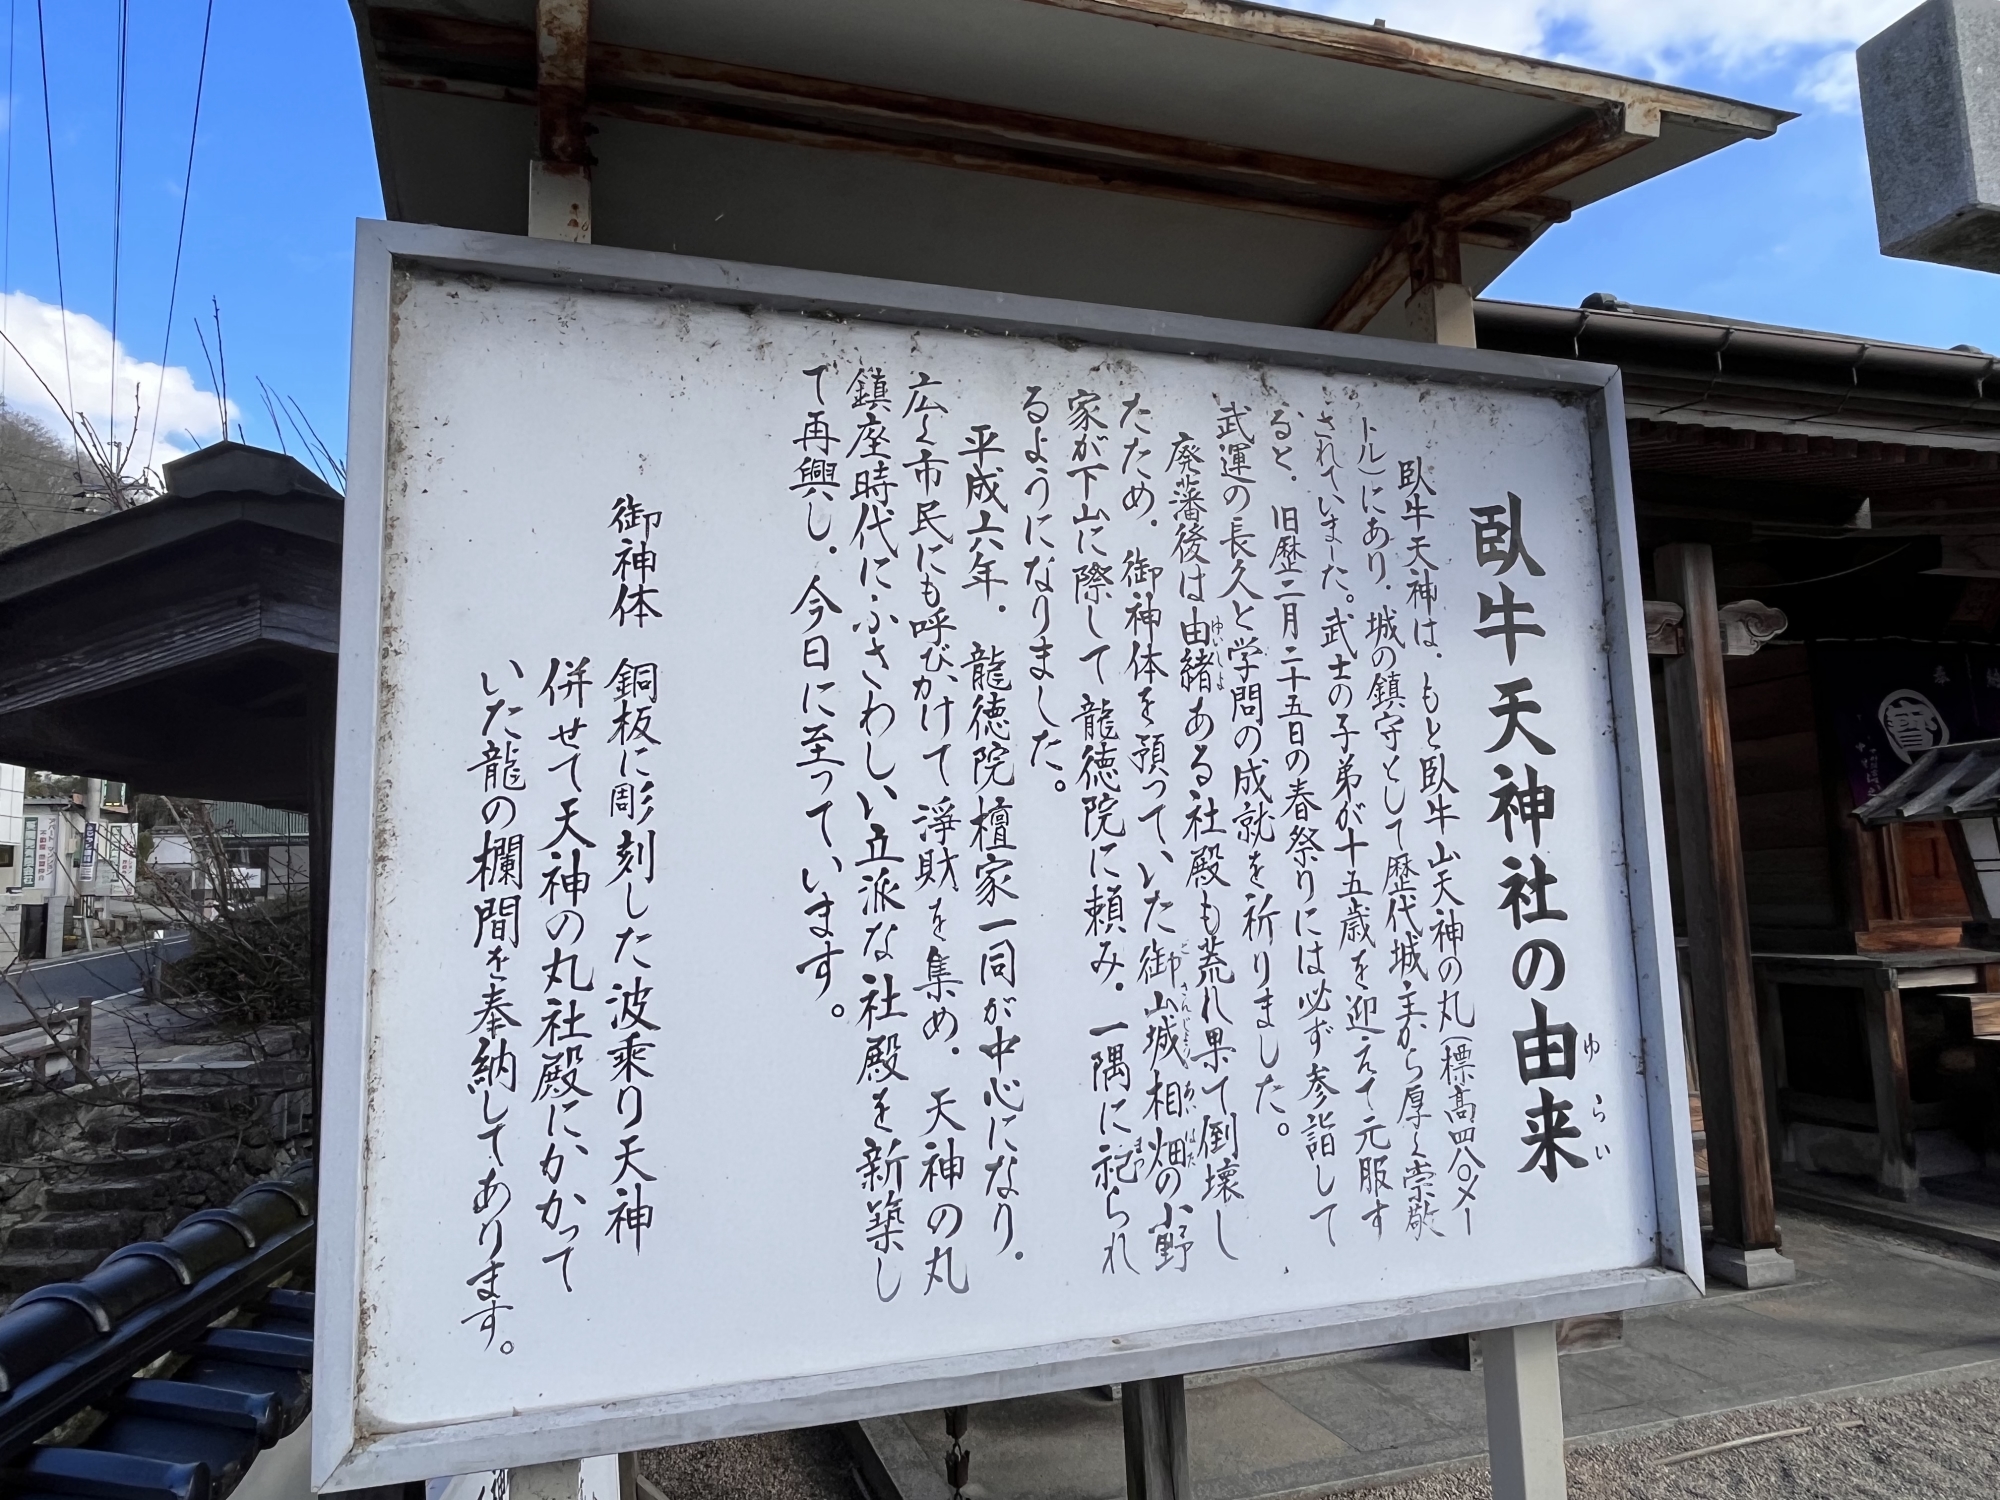 臥牛天神社の由来
ゆらい
臥牛天神は、もと臥牛山天神の丸(標高四八〇メー
トル)にあり、城の鎮守として歴代城主から厚く崇敬
されていました。武士の子弟が十五歳を迎えて元服す
ると、旧歴二月二十五日の春祭りには必ず参詣して
武運の長久と学問の成就を祈りました。
廃藩後は由緒ある社殿も荒れ果て倒壊し
ゆいしよ
たため、御神体を預っていた御山城相畑の小野
家が下山に際して龍徳院に頼み、一隅に祀られ
まつ
るようになりました。
平成六年、龍徳院檀家一同が中心になり、
広く市民にも呼びかけて浄財を集め、天神の丸
鎮座時代にふさわしい立派な社殿を新築し
て再興し、今日に至っています。
御神体 銅板に彫刻した波乗り天神
併せて天神の丸社殿にかかって
いた龍の欄間を奉納してあります。